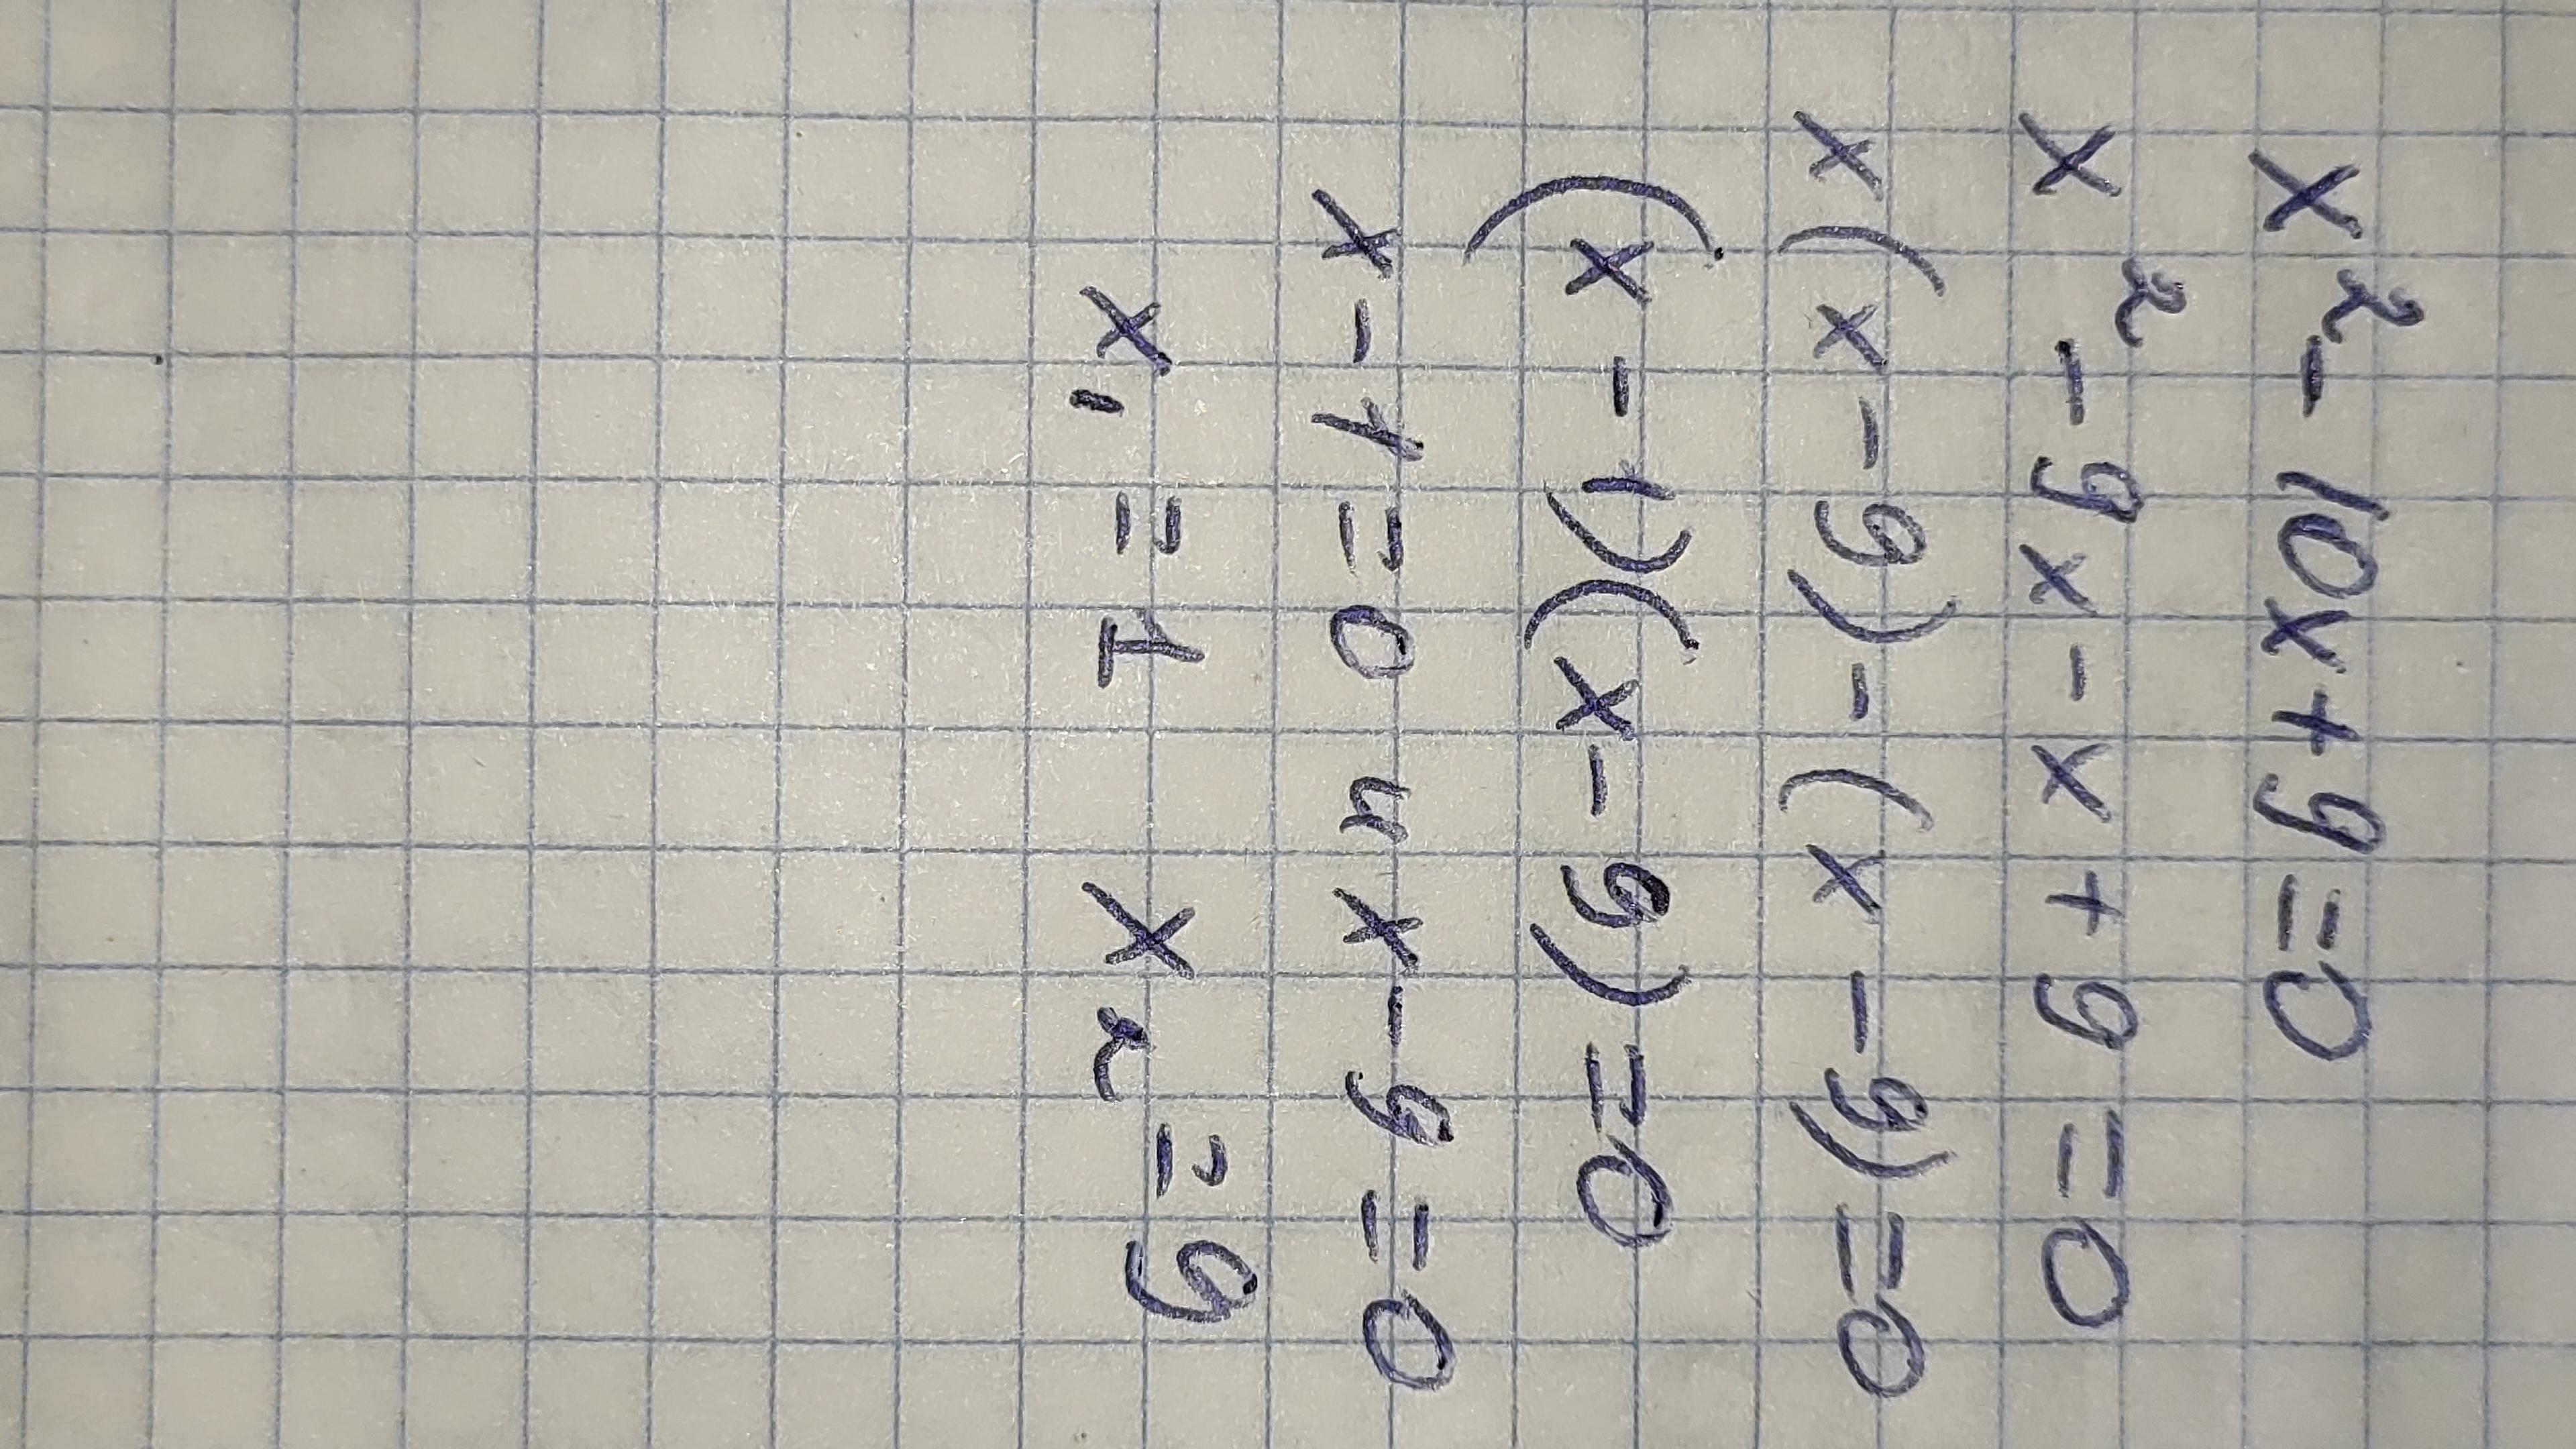 x² - 10x + 9 = 0
x² - 9x - x + 9 = 0
x(x - 9) - (x - 9) = 0
(x - 1)(x - 9) = 0
x - 1 = 0 и x - 9 = 0
x₁ = 1 x₂ = 9